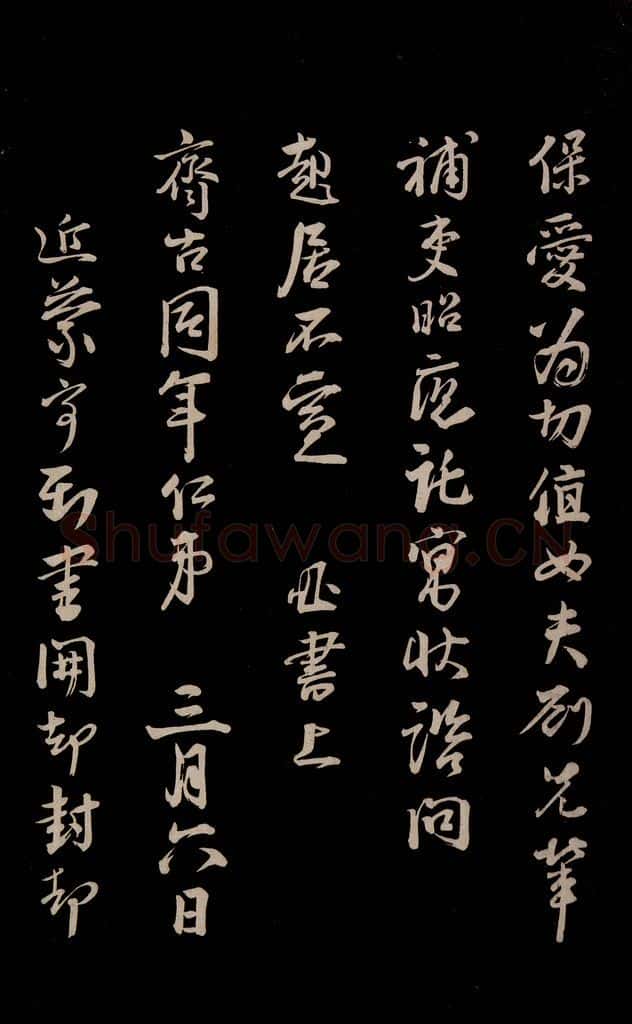 保愛為切值女夫劉兄葦
補吏昭應託寓狀諮問
起居不宣 書上
齊古同年仁弟 三月六日
近蒙寄到書開却封却
Shufawang.CN